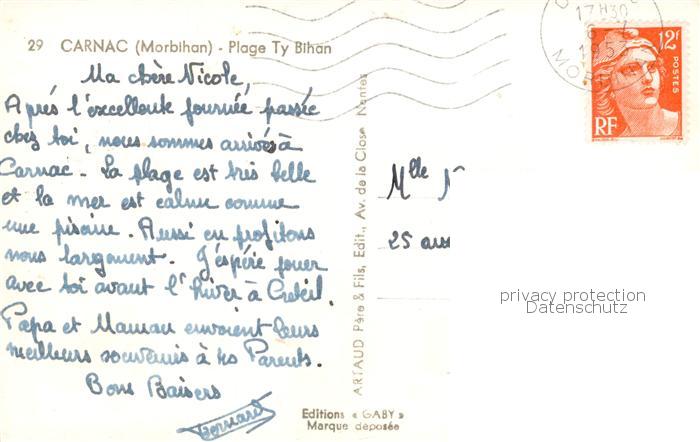 29 CARNAC (Morbihan) - Plage Ty Bihan
Ma chère Nicole,
Après l'excellente journée passée
chez toi, nous sommes arrivés à
Carnac. La plage est très belle
et la mer est calme comme
une piscine. Aussi en profitons
nous largement. J'éspère jouer
avec toi avant l'hiver à Créteil.
Papa et Maman envoient leurs
meilleurs souvenirs à tes Parents.
Bons Baisers
Bernard
ARTAUD Père & Fils, Edit., Av. de la Close Nantes
Editions « GABY »
Marque déposée
17H30
12f
POSTES
RF
Mlle N
25 aus
privacy protection
Datenschutz